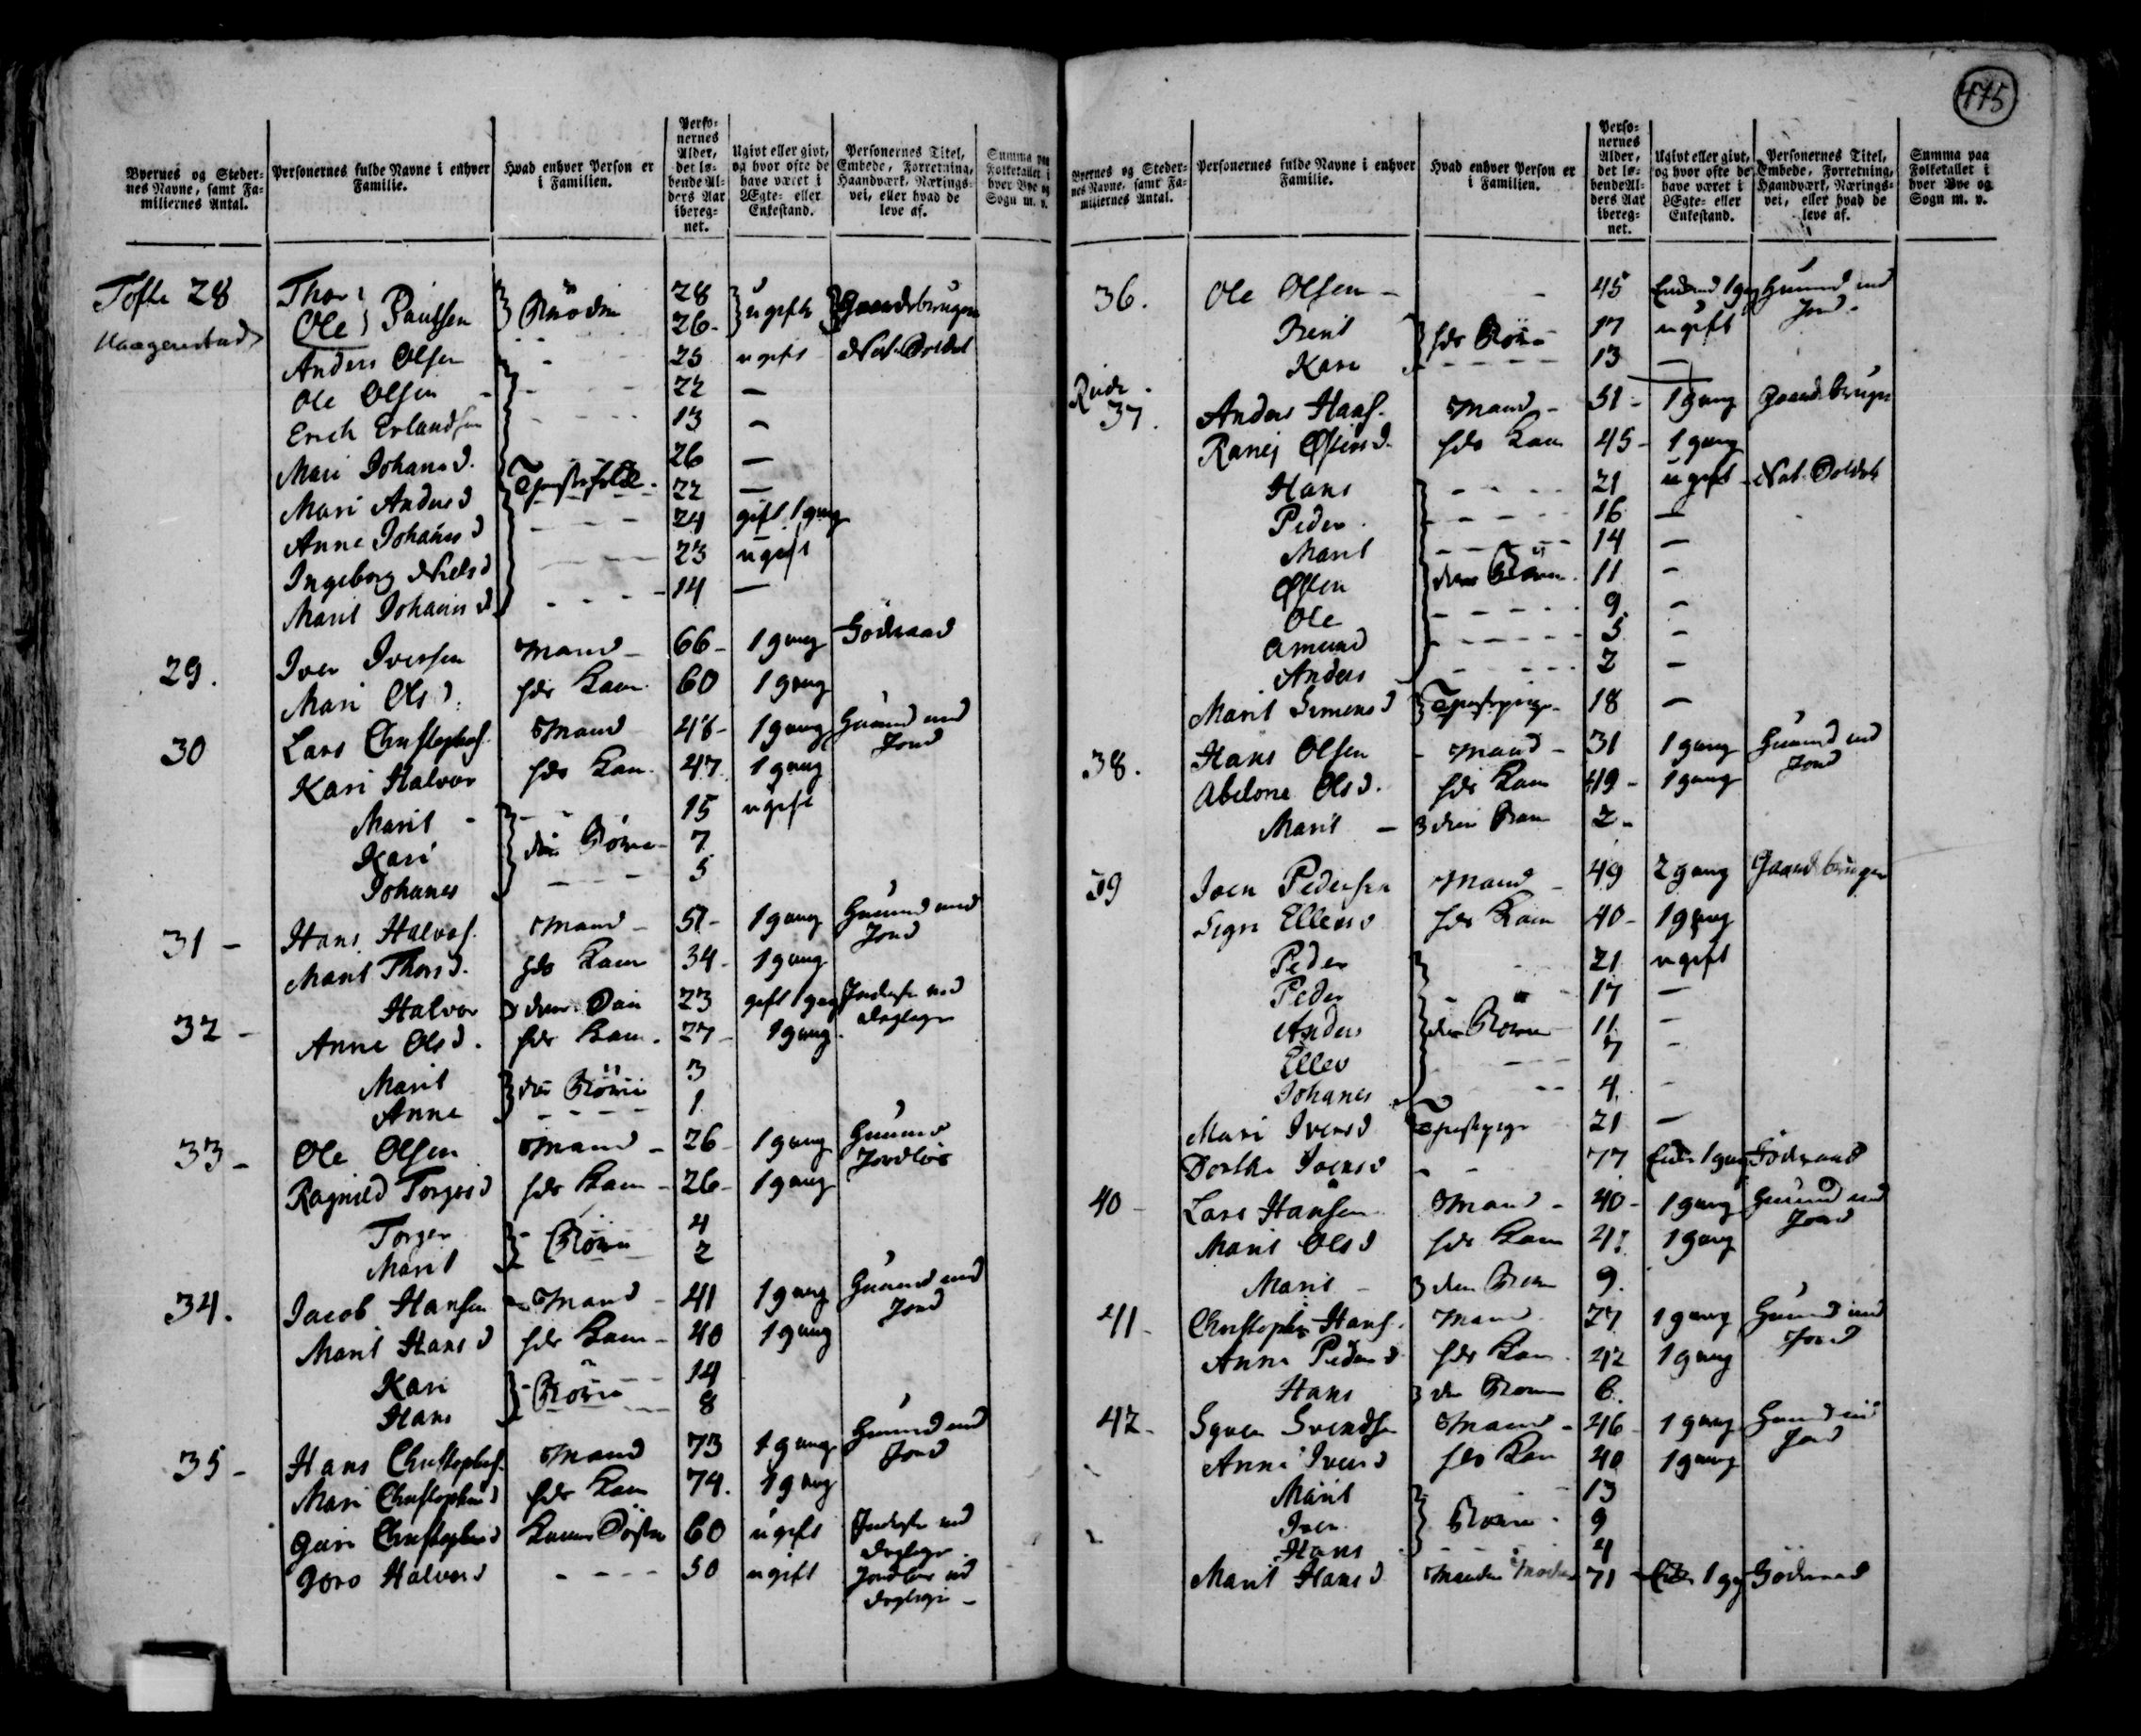 475
Byernes og Steder-
nes Navne, samt Fa-
miliernes Antal.
Personernes fulde Navne i enhver
Familie.
Hvad enhver Person er
i Familien.
Perso-
nernes
Alder,
det lø-
bende Al-
ders Aar
ibereg-
net.
Ugivt eller givt,
og hvor ofte de
have været i
Ægte- eller
Enkestand.
Personernes Titel,
Embede, Forretning,
Haandværk, Nærings-
vei, eller hvad de
leve af.
Summa paa
Folketallet i
hver Bye og
Sogn m. v.
Tofte 28 Thor } 28
Haagenstad Ole } Paulsen } Brødre 26 } ugifte } Gaardbruger
Anders Olsen 25 ugift Nat. Soldat
Ole Olsen - 22 —
Erich Erlandsen 13 —
Mari Johansd. 26 —
Mari Andersd } Tjenestefolk 22 —
Anne Johansd 24 gift 1 gang
Ingeborg Nielsd 23 ugift
Marit Johansd 14 —
29. Iver Iversen Mand - 66 - 1 gang Føderaad
Mari Olsd. hds Kone 60 1 gang
30 Lars Christophs. Mand 48 - 1 gang Huusmd med Jord
Kari Halvor hds Kone 47 1 gang
Marit - 15 ugift
Kari } dres Børn 7
Johanes 5
31 - Hans Halvors. Mand - 51 - 1 gang Huusmd med Jord
Marit Thorsd. hds Kone 34 - 1 gang
Halvor } dres Søn 23 gift 1 gang Inderst ved
32 - Anne Olsd. hds Kone. 27 - 1 gang. dagleye
Marit } dres Børn 3
Anne 1
33 - Ole Olsen Mand - 26 - 1 gang Huusmd Jordløs
Ragnild Torgersd hds Kone - 26 - 1 gang
Torger } Børn 4
Marit 2
34. Jacob Hansen Mand - 41 1 gang Huusmd med Jord
Marit Hansd hds Kone - 40 1 gang
Kari } Børn 14
Hans 8
35 - Hans Christophs. Mand 73 1 gang Huusmd med Jord
Mari Christophersd hds Kone 74. 1 gang
Guri Christophersd Konens Søster 60 ugift Inderst ved dagleye
Goro Halvorsd - - - - 50 ugift Jordløs ved dagleye -
Byernes og Steder-
nes Navne, samt Fa-
miliernes Antal.
Personernes fulde Navne i enhver
Familie.
Hvad enhver Person er
i Familien.
Perso-
nernes
Alder,
det lø-
bende Al-
ders Aar
ibereg-
net.
Ugivt eller givt,
og hvor ofte de
have været i
Ægte- eller
Enkestand.
Personernes Titel,
Embede, Forretning,
Haandværk, Nærings-
vei, eller hvad de
leve af.
Summa paa
Folketallet i
hver Bye og
Sogn m. v.
36. Ole Olsen - - 45 Enkemd 1 gang Huusmd med Jord.
Berit } hds Børn 17 ugift
Kari 13 —
37. Anders Hans. Mand - 51 - 1 gang Gaardbruger
Ranej Østensd. hds Kone 45 - 1 gang
Hans 21 ugift - Nat. Soldat
Peder 16 —
Marit 14 —
Østen } dres Børn 11 -
Ole 9. -
Amund 5 -
Anders 2 -
Marit Simensd } Tjenestepige 18 —
38. Hans Olsen - Mand - 31 1 gang Huusmd med Jord
Abelone Olsd. hds Kone 49 - 1 gang
Marit - } dres Barn 2 -
39 Joen Pedersen Mand - 49 2 gang Gaardbruger
Sigri Ellevsd hds Kone 40 - 1 gang
Peder 21 ugift
Peder 17 —
Anders } dres Børn 11 -
Ellev 7 -
Johanes 4. -
Mari Iversd Tjenestepige 21 —
Dorthe Joensd - - 77 Enke 1 gang Føderaad
40 - Lars Hansen Mand - 40 - 1 gang Huusmd med Jord
Marit Olsd hds Kone 41 1 gang
Marit - } dres Barn 9.
41 - Christopher Hans. Mand 27 1 gang Huusmd med Jord
Anne Pedersd hds Kone 42 1 gang
Hans } dres Barn 6.
42 - Syver Svendsen Mand - 46 - 1 gang Huusmd med Jord
Anne Iversd hds Kone 40 1 gang
Marit 13
Iver } Børn 9
Hans 4
Marit Hansd Mandens Moder 71 Enke 1 gang Føderaad